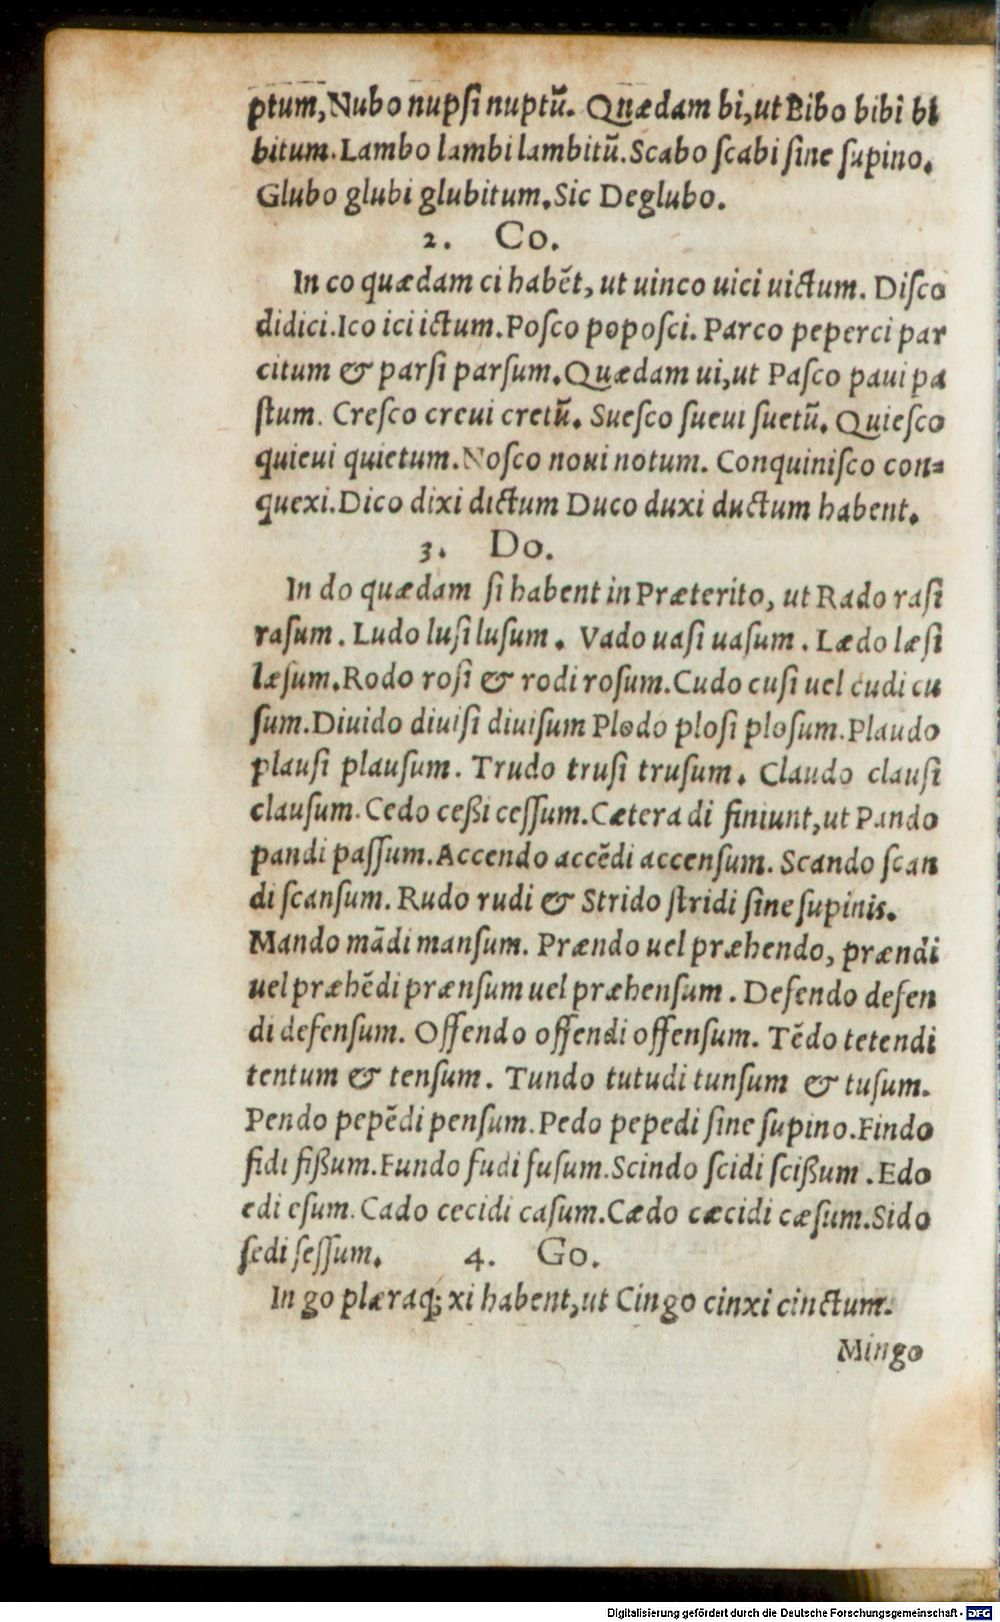 ptum, Nubo nupſi nuptũ. Quædam bi, ut Bibo bibi bi
bitum. Lambo lambi lambitũ. Scabo ſcabi ſine ſupino.
Glubo glubi glubitum. Sic Deglubo.
2. Co.
In co quædam ci habẽt, ut uinco uici uictum. Diſco
didici. Ico ici ictum. Poſco popoſci. Parco peperci par
citum & parſi parſum. Quædam ui, ut Paſco paui pa
ſtum. Creſco creui cretũ. Sueſco ſueui ſuetũ. Quieſco
quieui quietum. Noſco noui notum. Conquiniſco con=
quexi. Dico dixi dictum Duco duxi ductum habent.
3. Do.
In do quædam ſi habent in Præterito, ut Rado raſi
raſum. Ludo luſi luſum. Vado uaſi uaſum. Lædo læſi
læſum. Rodo roſi & rodi roſum. Cudo cuſi uel cudi cu
ſum. Diuido diuiſi diuiſum Plodo ploſi ploſum. Plaudo
plauſi plauſum. Trudo truſi truſum. Claudo clauſi
clauſum. Cedo ceßi ceſſum. Cætera di finiunt, ut Pando
pandi paſſum. Accendo accẽdi accenſum. Scando ſcan
di ſcanſum. Rudo rudi & Strido ſtridi ſine ſupinis.
Mando mãdi manſum. Prændo uel præhendo, prændi
uel præhẽdi prænſum uel præhenſum. Defendo defen
di defenſum. Offendo offendi offenſum. Tẽdo tetendi
tentum & tenſum. Tundo tutudi tunſum & tuſum.
Pendo pepẽdi penſum. Pedo pepedi ſine ſupino. Findo
fidi fißum. Fundo fudi fuſum. Scindo ſcidi ſcißum. Edo
edi eſum. Cado cecidi caſum. Cædo cæcidi cæſum. Sido
ſedi ſeſſum. 4. Go.
In go plæraq; xi habent, ut Cingo cinxi cinctum.
Mingo
Digitalisierung gefördert durch die Deutsche Forschungsgemeinschaft - DFG